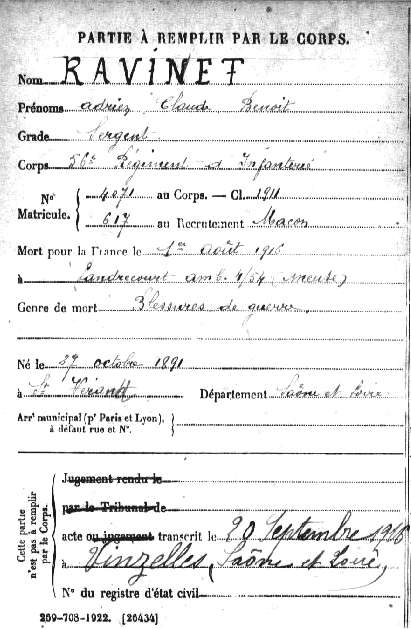 PARTIE À REMPLIR PAR LE CORPS.
Nom RAVINET
Prénoms Claude Benoit
Grade Sergent
Corps 56e Régiment d'Infanterie
Nº Matricule. 4071 au Corps. — Cl. 1911
617 au Recrutement Macon
Mort pour la France le 1er août 1916
à Landrecourt amb. 4/54 (Meuse)
Genre de mort Blessures de guerre.
Né le 27 octobre 1891
à St Verand Département Saône et Loire
Arrt municipal (pr Paris et Lyon),
à défaut rue et Nº.
Cette partie
n'est pas à remplir
par le Corps.
Jugement rendu le
par le Tribunal de
acte ou jugement transcrit le 20 Septembre 1916
à Vinzelles, (Saône et Loire)
Nº du registre d'état civil
259-708-1922. [26434]